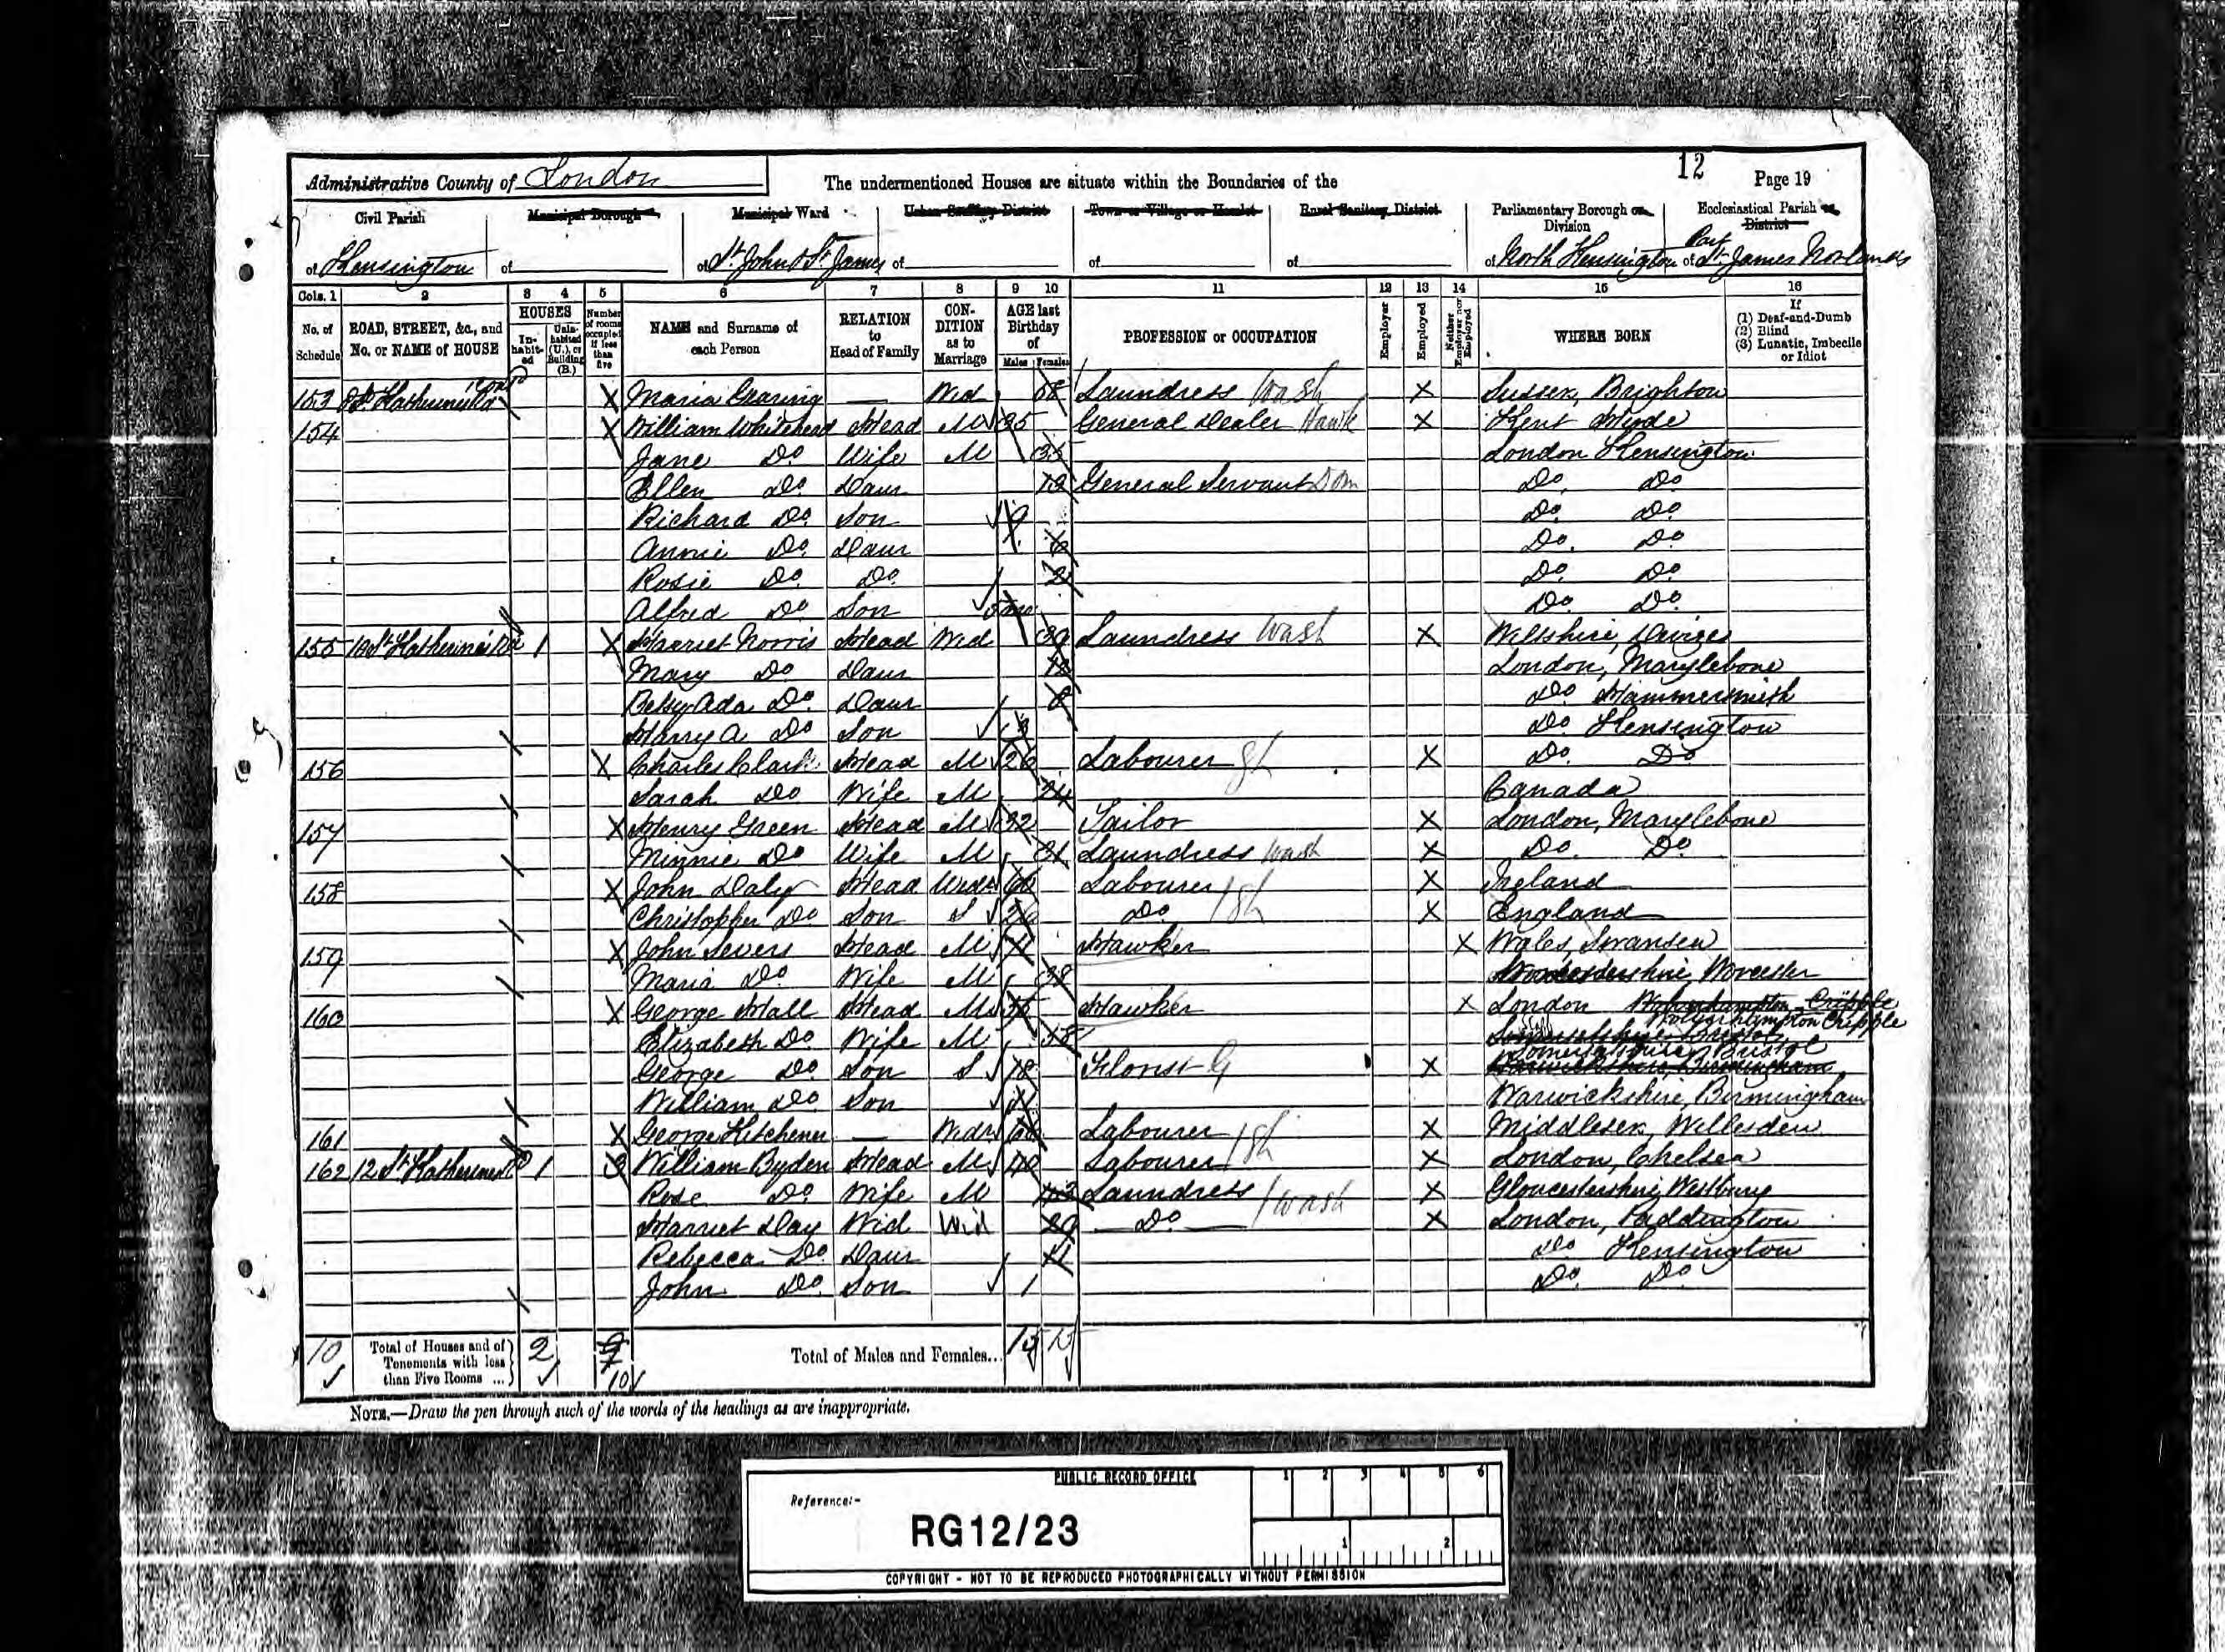 12
Page 19
Administrative County of London
The undermentioned Houses are situate within the Boundaries of the
Civil Parish of Kensington
Municipal Borough of
Municipal Ward of St. John & St. James
Urban Sanitary District of
Town or Village or Hamlet of
Rural Sanitary District of
Parliamentary Borough or Division of North Kensington
Ecclesiastical Parish or District of Part St. James Norlands
Cols. 1 2 3 4 5 6 7 8 9 10 11 12 13 14 15 16
No. of Schedule
ROAD, STREET, &c., and No. or NAME of HOUSE
HOUSES
Inhabited
Uninhabited (U.), or Building (B.)
Number of rooms occupied if less than five
NAME and Surname of each Person
RELATION to Head of Family
CONDITION as to Marriage
AGE last Birthday of
Males Females
PROFESSION or OCCUPATION
Employer
Employed
Neither Employer nor Employed
WHERE BORN
If
(1) Deaf-and-Dumb
(2) Blind
(3) Lunatic, Imbecile or Idiot
153 St. Katherine's Rd X Maria Gearing — Wid Laundress Wash X Sussex, Brighton
154 X William Whitehead Head M 35 General Dealer Hawk X Kent
Jane Do Wife M London Kensington
Ellen Do Daur General Servant Dom Do Do
Richard Do Son 9 Do Do
Annie Do Daur Do Do
Rosie Do Do 2 Do Do
Alfred Do Son Do Do
155 St. Katherine's Rd 1 X Harriet Norris Head Wid 39 Laundress Wash X Wiltshire, Devizes
Mary Do Daur London, Marylebone
Betsy Ada Do Daur Do Hammersmith
Harry A Do Son 3 Do Kensington
156 X Charles Clark Head M 26 Labourer X Do Do
Sarah Do Wife M 24 Canada
157 X Henry Green Head M 32 Tailor X London, Marylebone
Minnie Do Wife M 31 Laundress Wash X Do Do
158 X John Daly Head Widr Labourer X Ireland
Christopher Do Son S Do X England
159 X John Severs Head M Hawker X Wales, Swansea
Maria Do Wife M 38 Worcestershire, Worcester
160 X George Hall Head M Hawker X London Wolverhampton Cripple
Wolverhampton Cripple
Elizabeth Do Wife M 38 Somersetshire Bristol
Somersetshire, Bristol
George Do Son S 18 Florist G X Warwickshire, Birmingham
William Do Son Warwickshire, Birmingham
161 X George Kitchener — Widr Labourer X Middlesex, Willesden
162 12 St. Katherines Rd 1 3 William Byden Head M 40 Labourer X London, Chelsea
Rose Do Wife M 43 Laundress wash X Gloucestershire, Westbury
Harriet Day Wid Wid 29 Do X London, Paddington
Rebecca Do Daur Do Kensington
John Do Son 1 Do Do
10 Total of Houses and of Tenements with less than Five Rooms ... 2 10 Total of Males and Females... 15 15
NOTE.—Draw the pen through such of the words of the headings as are inappropriate.
PUBLIC RECORD OFFICE
1 2 3 4 5 6
Reference:-
RG12/23
1 2
COPYRIGHT - NOT TO BE REPRODUCED PHOTOGRAPHICALLY WITHOUT PERMISSION